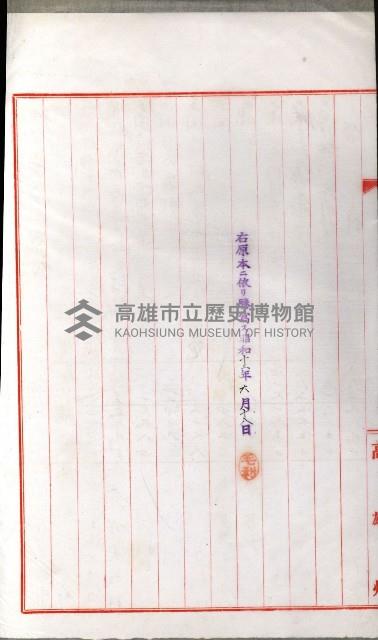 右原本ニ依リ謄寫ス昭和十六年六月十八日
高雄州
高雄市立歷史博物館
KAOHSIUNG MUSEUM OF HISTORY